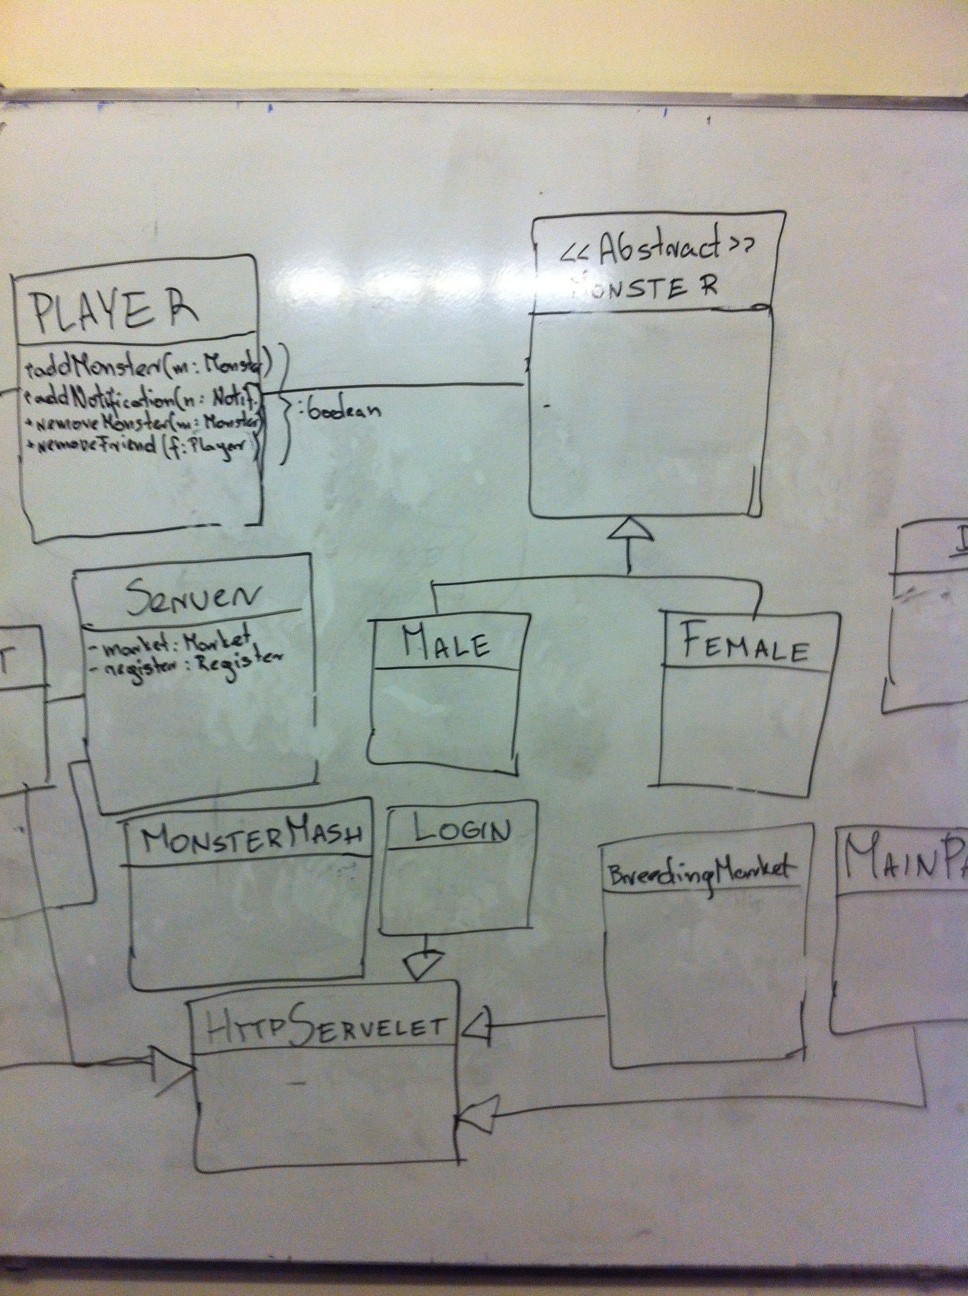 <<Abstract>>
MONSTER
PLAYER
+addMonster(m: Monster)
+addNotification(n: Notif.
+removeMonster(m: Monster)
+removeFriend (f: Player)
}:boolean
SERVER
- market: Market
- register: Register
T
MALE
FEMALE
MONSTERMASH
LOGIN
BreedingMarket
MAINPA
HTTPSERVELET